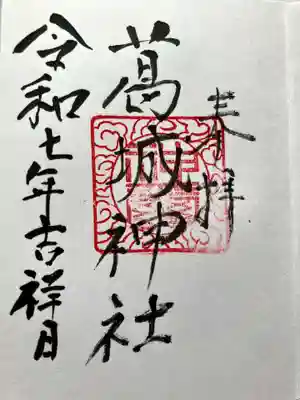 奉拝
葛城神社
令和七年吉祥日